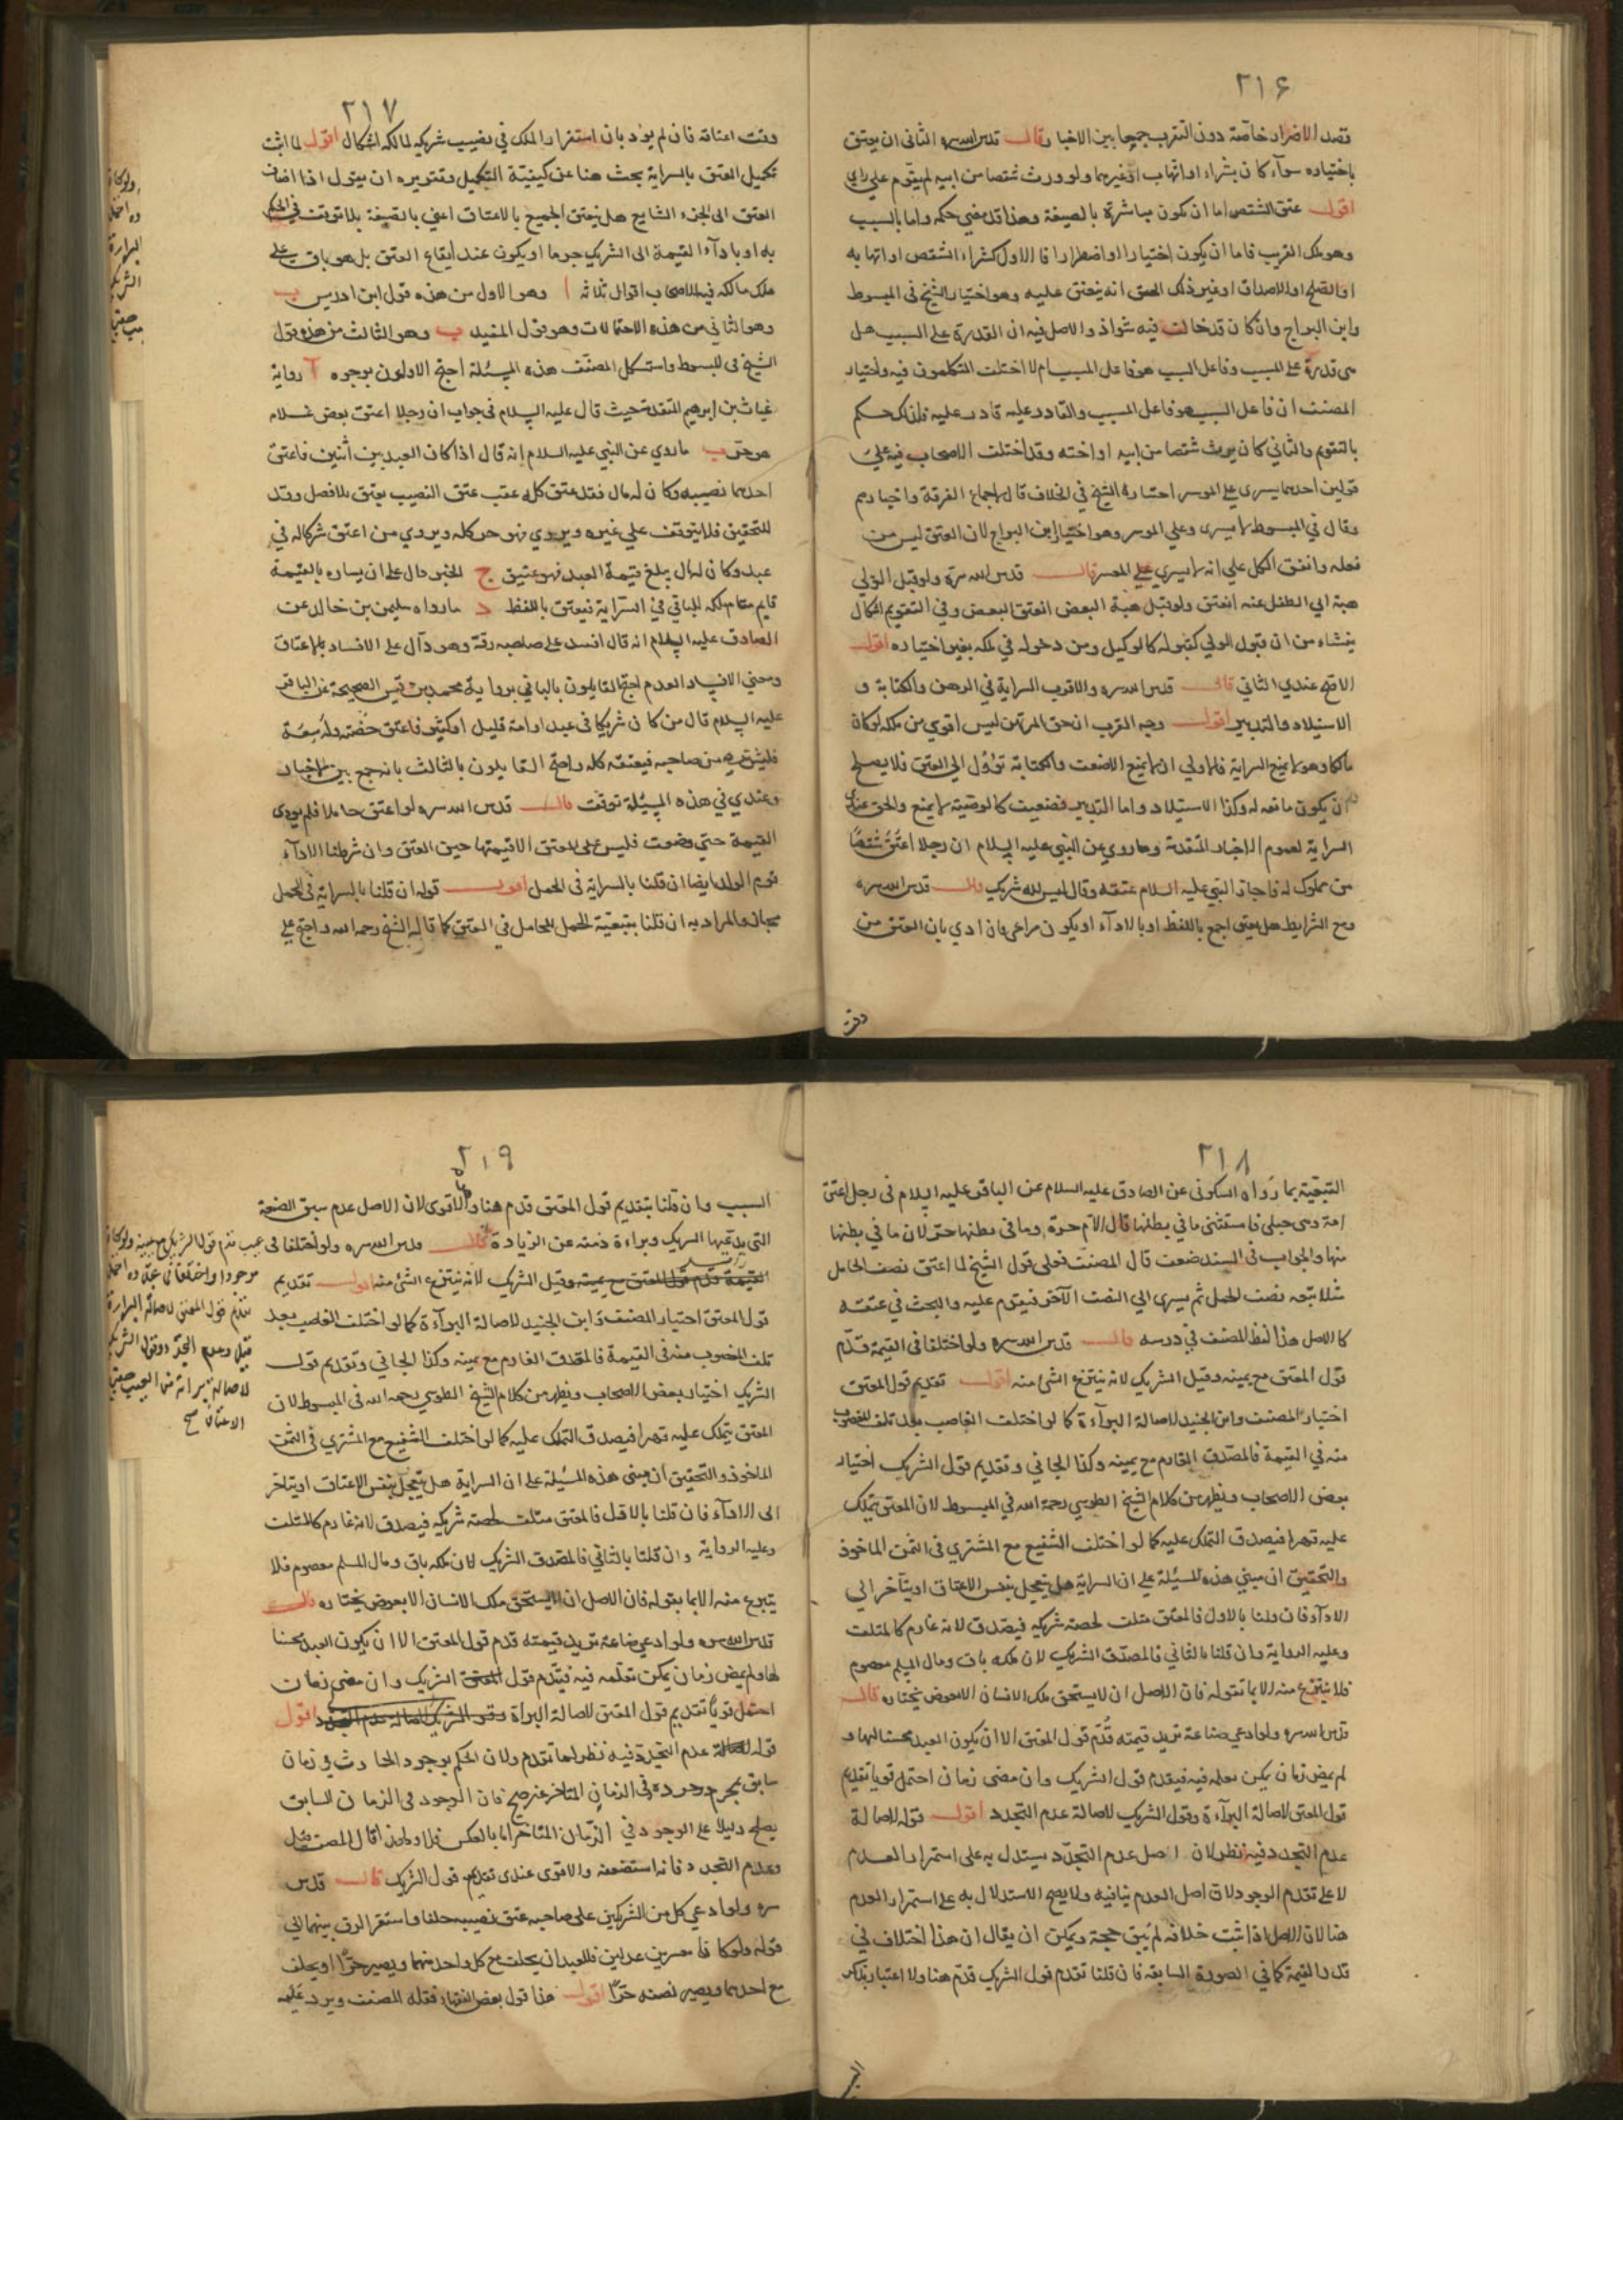 ٢١۶
قصد الاضرار خاصة دون التقرب جمعا بين الاخبار قال قدس الله سره الثاني ان يعتق
باختياره سوآء كان بشراء او اتهاب او غيرهما ولو ورث شقصا من ابيه لم يقوم على راي
اقول عتق الشقص اما ان يكون مباشرة بالصيغة وهذا قد مضى حكمه واما بالسبب
وهو ملك القريب فاما ان يكون اختيارا او اضطرارا فالاول كشراء الشقص او اتهابه
او الصلح او الاصداق او غير ذلك الحق انه ينعتق عليه وهو اختيار الشيخ في المبسوط
وابن البراج وان كان قد خالف فيه شواذ والاصل فيه ان القدرة على السبب هل
هي قدرة على المسبب وفاعل السبب هو فاعل المسبب ام لا اختلف المتكلمون فيه واختيار
المصنف ان فاعل السبب هو فاعل المسبب والقادر عليه قادر عليه فلذلك حكم
بالتقويم والثاني كان يورث شقصا من ابيه او اخته وقد اختلف الاصحاب فيه على
قولين احدهما يسري على الموسر اختاره الشيخ في الخلاف قال باجماع الفرقة واخبارهم
وقال في المبسوط لا يسري وعلى الموسر وهو اختيار ابن البراج لان العتق ليس من
فعله واتفق الكل على انه لا يسري على المعسر قال قدس الله سره ولو قبل الولي
هبة ابي الطفل عنه انعتق ولو قبل هبة البعض انعتق البعض وفي التقويم اشكال
ينشاء من ان قبول الولي كقبوله كالوكيل ومن دخوله في ملكه بغير اختياره اقول
الاصح عندي الثاني قال قدس الله سره والاقرب السراية في الرهن والكتابة و
الاستيلاد والتدبير اقول وجه القرب ان حق المرتهن ليس اقوي من ملكه لو كان
مالكا وهو لا يمنع السراية فالاولى ان لا يمنع الاضعف والكتابة تؤل الى العتق فلا يصلح
ان يكون مانعه له وكذا الاستيلاد واما التدبير فضعيف كالوصية لا يمنع والحق عندي
السراية لعموم الاخبار المتقدمة وما روي عن النبي عليه السلام ان رجلا اعتق شقصا
من مملوك له فاجاز النبي عليه السلام عتقه وقال ليس لله شريك قال قدس الله سره
ومع الشرايط هل يعتق اجمع باللفظ او بالادآء او يكون مراعى فان ادي بان العتق من
وقت
٢١٧
وقت اعتاقه فان لم يؤد بان استقرار الملك في نصيب شريكه لمالكه اشكال اقول لما اثبت
تكميل العتق بالسراية بحث هنا عن كيفية التكميل وتقريره ان يقول اذا اضاف
العتق الى الجزء الشايع هل ينعتق الجميع بالاعتاق اعني بالصيغة بلا توقف في الحكم
به او بادآء القيمة الى الشريك جوما او يكون عند ايقاع العتق بل هو باق على
ملك مالكه فيه للاصحاب اقوال ثلاثة ا وهو الاول من هذه قول ابن ادريس ب
وهو الثاني من هذه الاحتمالات وهو قول المفيد ب وهو الثالث من هذه قول
الشيخ في المبسوط واستشكل المصنف هذه المسئلة احتج الاولون بوجوه آ رواية
غياث بن ابرهيم المتقدمة حيث قال عليه السلام في جواب ان رجلا اعتق بعض غلام
هو حر ب ما روي عن النبي عليه السلام انه قال اذا كان العبد بين اثنين فاعتق
احدهما نصيبه وكان له مال فقد عتق كله عقب عتق النصيب يعتق بلا فصل وقد
للتحقيق فلا يتوقف على غيره ويروي فهو حر كله ويروي من اعتق شركا له في
عبد وكان له مال يبلغ قيمة العبد فهو عتيق ج الخبر دال على ان يساره بالقيمة
قايم مقام ملكه للباقي في السراية فيعتق باللفظ د ما رواه سليمن بن خالد عن
الصادق عليه السلام انه قال افسد على صاحبه رقه وهو دآل على الافساد بالاعتاق
ومعنى الافساد العدم احتج القايلون بالباقي برواية محمد بن قيس الصحيحة عن الباقر
عليه السلام قال من كان شريكا في عبد او امة قليل او كثير فاعتق حصته وله سعة
فليشتره من صاحبه فيعتقه كله واحتج القايلون بالثالث بانه جمع بين الاخبار
وعندي في هذه المسئلة توقف قال قدس الله سره لو اعتق حاملا فلم يودى
القيمة حتى وضعت فليس على المعتق الا قيمتها حين العتق وان شرطنا الادآء
قوم الولد ايضا ان قلنا بالسراية في الحمل اقول قوله ان قلنا بالسراية في الحمل
مجاز والمراد به ان قلنا بتبعية الحمل للحامل في العتق كما قاله الشيخ رحمه الله واحتج على
٢١٨
التبعية بما رواه السكوني عن الصادق عليه السلام عن الباقر عليه السلام في رجل اعتق
امة وهى حبلى فاستثنى ما في بطنها قال الام حرة وما في بطنها حر لان ما في بطنها
منها والجواب في السند ضعف قال المصنف فعلى قول الشيخ لما اعتق نصف الحامل
مثلا تبعه نصف الحمل ثم يسري الى النصف الآخر فيقوم عليه والبحث في عتقه
كالاصل هذا لفظ المصنف في درسه قال قدس الله سره ولو اختلفا في القيمة قدم
قول المعتق مع يمينه وقيل الشريك لانه ينتزع الشئ منه اقول تقديم قول المعتق
اختيار المصنف وابن الجنيد لاصالة البرآءة كما لو اختلف الغاصب بعد تلف المغصوب
منه في القيمة فالمصدق الغارم مع يمينه وكذا الجاني وتقديم قول الشريك اختيار
بعض الاصحاب ويظهر من كلام الشيخ الطوسي رحمه الله في المبسوط لان المعتق يتملك
عليه قهرا فيصدق المتملك عليه كما لو اختلف الشفيع مع المشتري في الثمن الماخوذ
والتحقيق ان مبنى هذه المسئلة على ان السراية هل يتعجل بنفس الاعتاق او يتآخر الى
الادآء فان قلنا بالاول فالمعتق متلف لحصة شريكه فيصدق لانه غارم كالمتلف
وعليه الرواية وان قلنا بالثاني فالمصدق الشريك لان ملكه باق ومال المسلم معصوم
فلا ينتزع منه الا بما تقوله فان الاصل ان لا يستحق ملك الانسان الا بعوض يختاره قال
قدس الله سره ولو ادعى صناعة تزيد قيمته قدم قول المعتق الا ان يكون العبد محسنا لها و
لم يمض زمان يمكن تعلمه فيه فيقدم قول الشريك وان مضى زمان احتمل قويا تقديم
قول المعتق لاصالة البرآءة وقول الشريك لاصالة عدم التجدد اقول قوله لاصالة
عدم التجدد فيه نظر لان اصل عدم التجدد يستدل به على استمرار العدم
لا على تقدم الوجود لان اصل العدم ينافيه ولا يصح الاستدلال به على استمرار العدم
هنا لان الاصل اذا ثبت خلافه لم يبق حجة ويمكن ان يقال ان هذا اختلاف في
قدر القيمة كما في الصورة السابقة فان قلنا تقدم قول الشريك قدم هنا ولا اعتبار بذكر
٢١٩
السبب وان قلنا بتقديم قول المعتق قدم هنا والاقوى لان الاصل عدم سبق الصنعة
التي يدعيها الشريك وبراءة ذمته عن الزيادة قال قدس الله سره ولو اختلفا في
القيمة قدم قول المعتق مع يمينه وقيل الشريك لانه ينتزع الشئ منه اقول تقديم
قول المعتق اختيار المصنف وابن الجنيد لاصالة البرآءة كما لو اختلف الغاصب بعد
تلف المغصوب منه في القيمة فالمصدق الغارم مع يمينه وكذا الجاني وتقديم قول
الشريك اختيار بعض الاصحاب ويظهر من كلام الشيخ الطوسي رحمه الله في المبسوط لان
المعتق يتملك عليه قهرا فيصدق المتملك عليه كما لو اختلف الشفيع مع المشتري في الثمن
الماخوذ والتحقيق ان مبنى هذه المسئلة على ان السراية هل يتعجل بنفس الاعتاق او يتاخر
الى الادآء فان قلنا بالاول فالمعتق متلف لحصة شريكه فيصدق لانه غارم كالمتلف
وعليه الرواية وان قلنا بالثاني فالمصدق الشريك لان ملكه باق ومال المسلم معصوم فلا
ينتزع منه الا بما يقوله فان الاصل ان لا يستحق ملك الانسان الا بعوض يختاره قال
قدس الله سره ولو ادعى صناعة تزيد قيمته قدم قول المعتق الا ان يكون العبد محسنا
لها ولم يمض زمان يمكن تعلمه فيه فيقدم قول الشريك وان مضى زمان
احتمل قويا تقديم قول المعتق لاصالة البراة وقول الشريك لاصالة عدم التجدد اقول
قوله لاصالة عدم التجدد فيه نظر لما تقدم ولان الحكم بوجود الحادث في زمان
سابق بمجرد وجوده في الزمان المتاخر غير صحيح فان الوجود في الزمان السابق
يصلح دليلا على الوجود في الزمان المتاخر اما بالعكس فلا ولهذا قال المصنف قيل
وعدم التجدد فانه استضعفه والاقوى عندي تقديم قول الشريك قال قدس
سره ولو ادعى كل من الشريكين على صاحبه عتق نصيبه حلفا واستقر الرق بينهما الى
قوله ولو كانا معسرين عدلين فللعبد ان يحلف مع كل واحد منهما ويصير حرا او يحلف
مع احدهما ويصير نصفه حرا اقول هذا قول بعض الفقهاء فنقله المصنف ويرد عليه
عيب قدم قول الشريك مع يمينه ولو كان
موجودا واختلفا في تجدده احتمل
تقديم قول المعتق لاصالة البراءة
قيل وعدم التجدد وقول الشريك
لاصالة براءته من العيب حين
الاعتاق صح